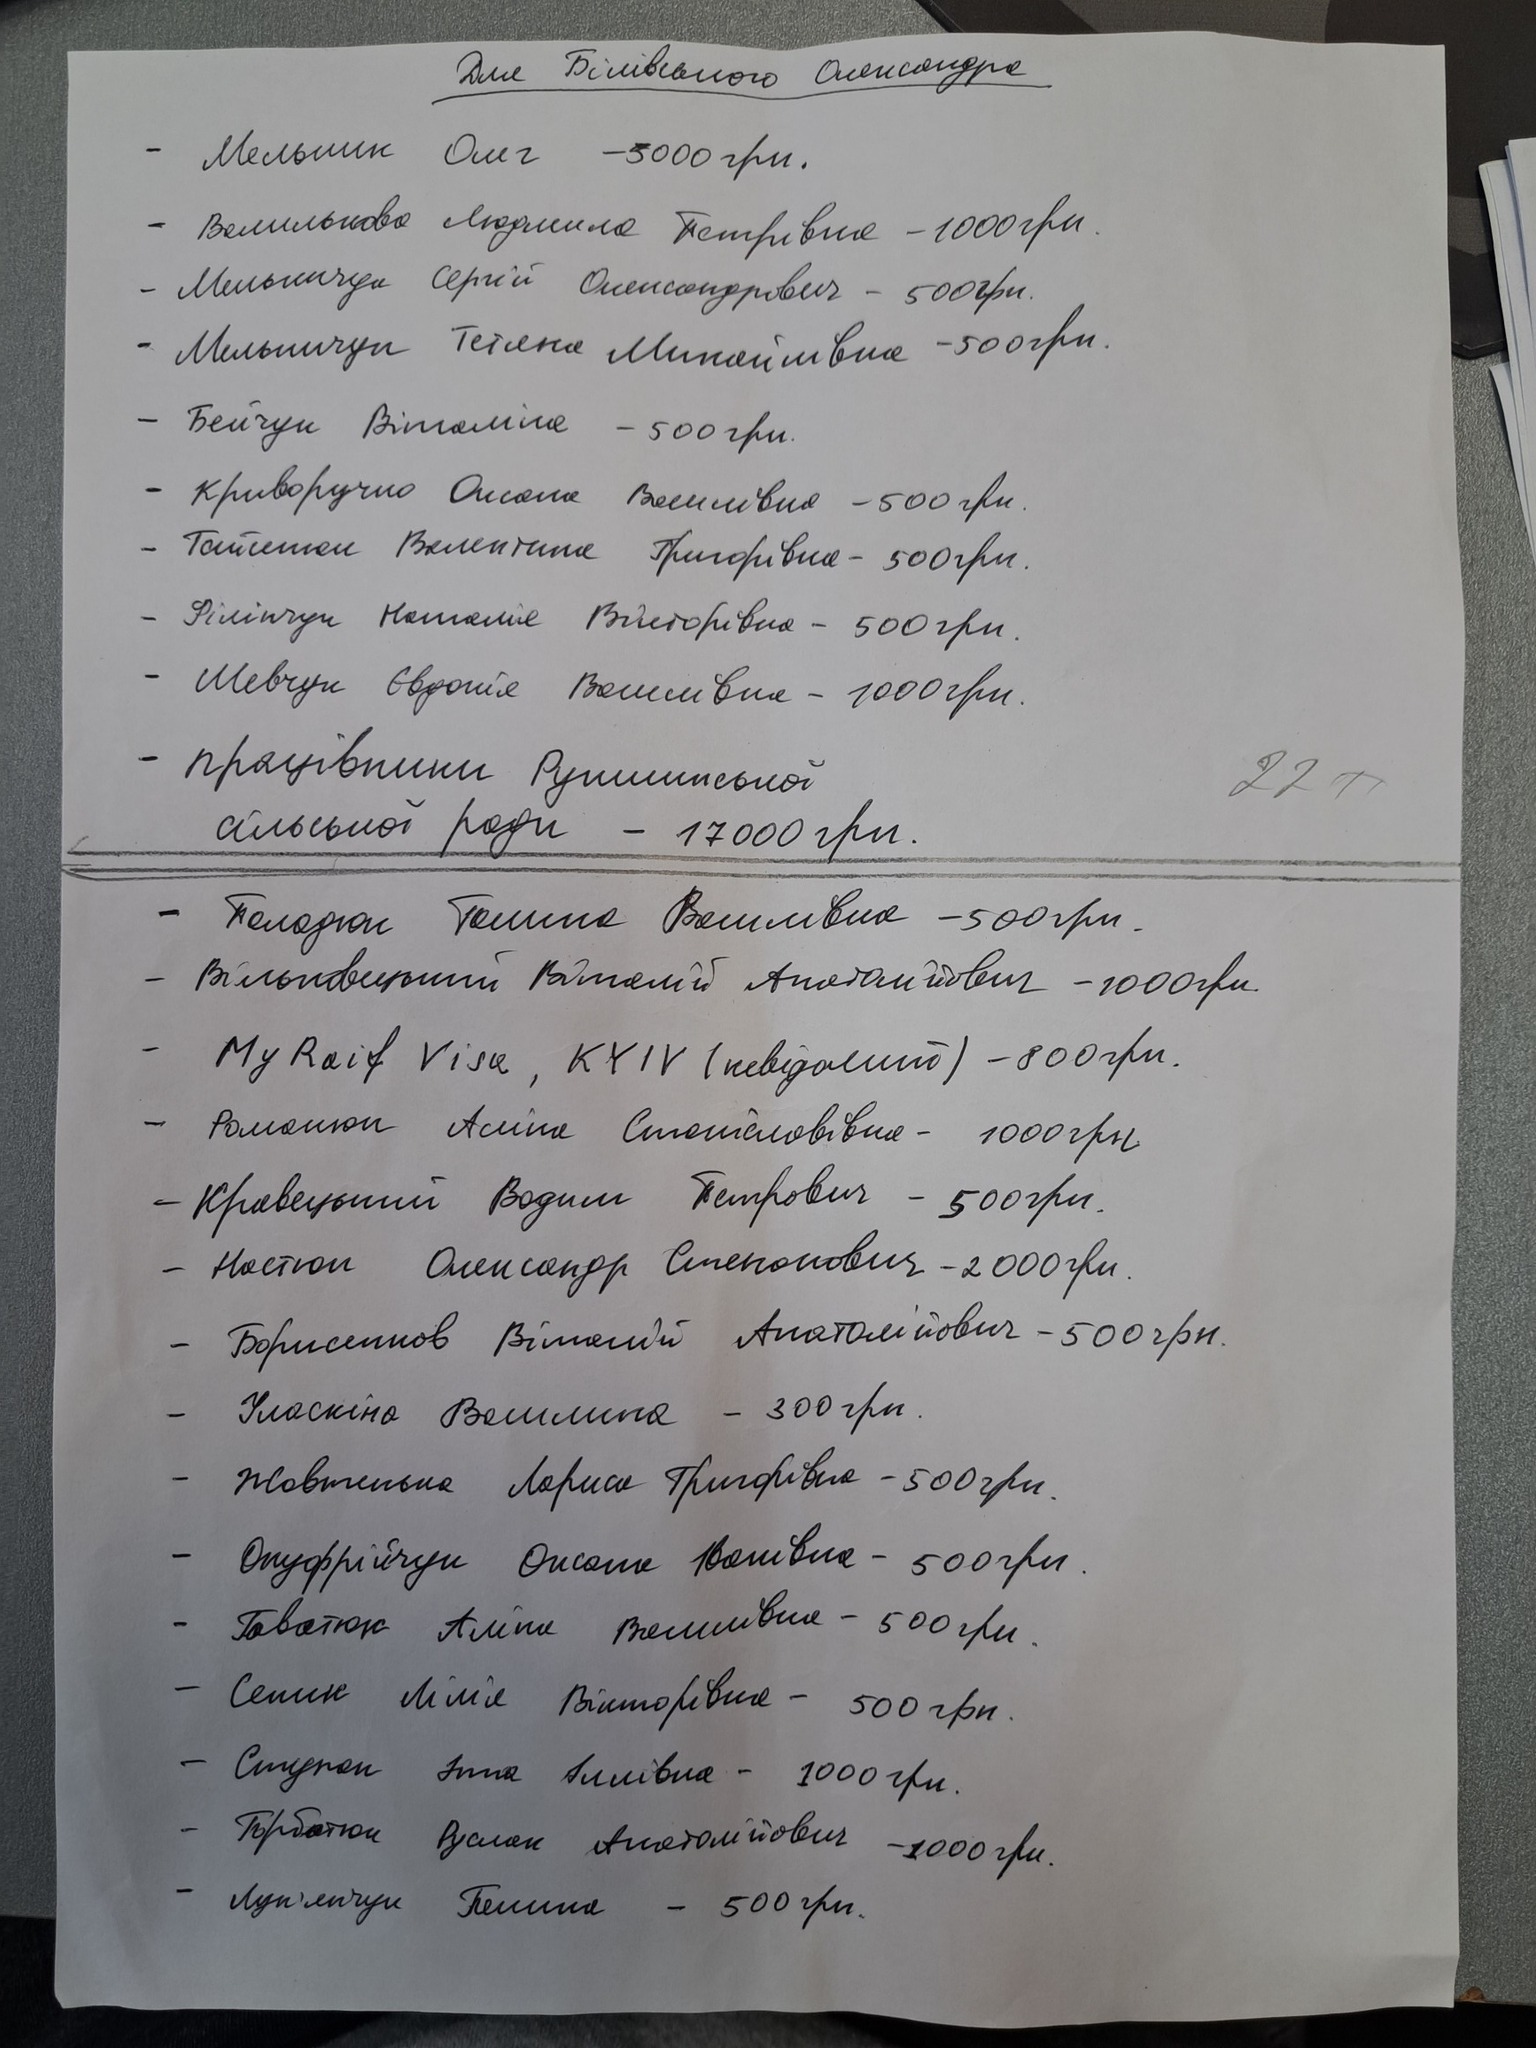 Для Білівського Олександра
- Мельник Олег - 5000 грн.
- Василькова Людмила Петрівна - 1000 грн.
- Мельничук Сергій Олександрович - 500 грн.
- Мельничук Тетяна Михайлівна - 500 грн.
- Бейчук Віталіна - 500 грн.
- Криворучко Оксана Василівна - 500 грн.
- Валентина Григорівна - 500 грн.
- Філіпчук Наталія Вікторівна - 500 грн.
- Шевчук Євдокія Василівна - 1000 грн.
- працівники
сільської ради - 17000 грн.
22
- Паладюк Галина Василівна - 500 грн.
- Вільковецький Віталій Анатолійович - 1000 грн.
- My Raif Visa, KYIV (невідомий) - 800 грн.
- Романюк Аліна Станіславівна - 1000 грн
- Кравецький Вадим Петрович - 500 грн.
- Настюк Олександр Степанович - 2000 грн.
- Борисенков Віталій Анатолійович - 500 грн.
- Уласкіна Василина - 300 грн.
- Жовтенька Лариса Григорівна - 500 грн.
- Онуфрійчук Оксана Іванівна - 500 грн.
- Гаватюк Аліна Василівна - 500 грн.
- Сеник Лілія Вікторівна - 500 грн.
- Ступак Інна Іллівна - 1000 грн.
- Горбатюк Руслан Анатолійович - 1000 грн.
- Галина - 500 грн.